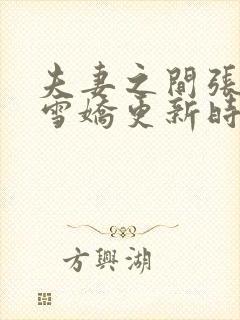 夫妻之間張
雪嬌更新時
方興湖